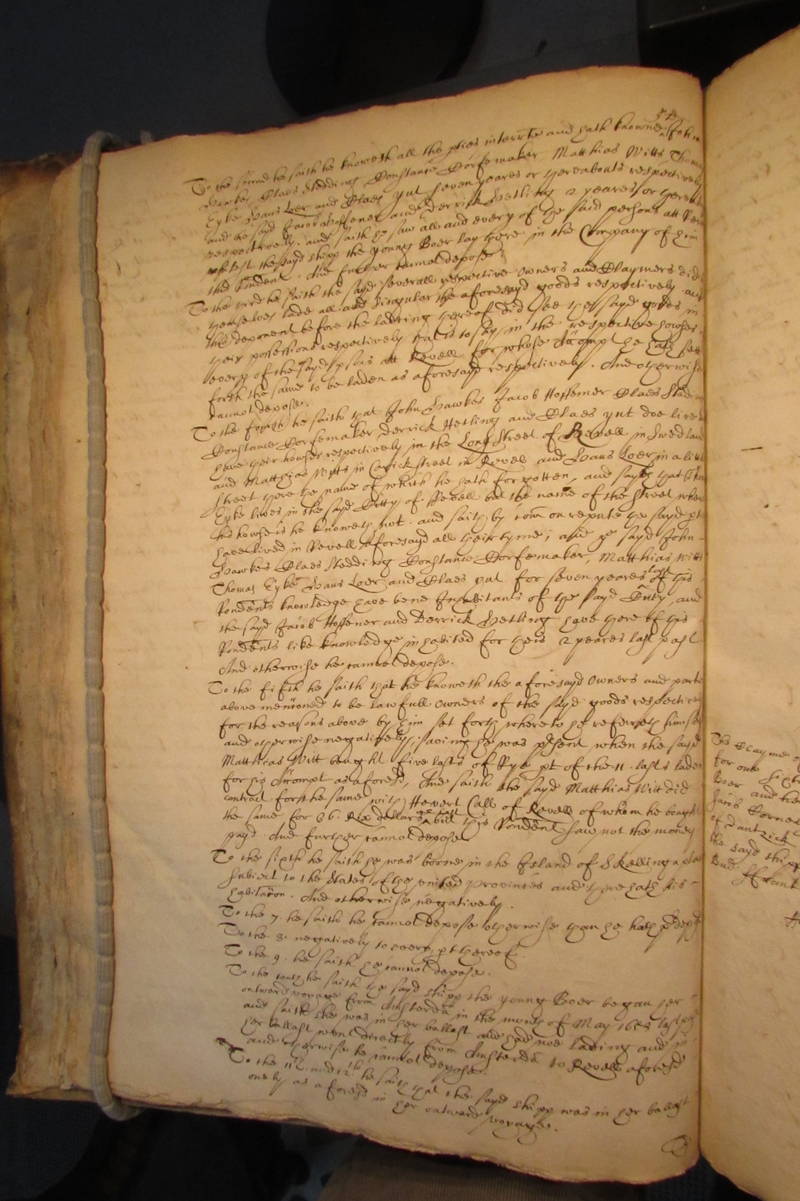 To the second he saith he knoweth all the pties interrte and hath knowne John
Hawkes Claes Stedding Constance Dorfemaker Matthias Witts Thomas
Eyke Hans Loer and Claes yut seven yeares or thereabouts respectively
and the sayd Jacob Hoffener and Derrick Hetling 2 yeares or thereabouts
respectively, and saith he saw all and every of the said persons att Revell
the sayd shipp the young Boer lay there in the Company of him
this Rendent. And further cannot depose
To the third he saith the sayd severall respective Owners and Claymers did
themselves lade all and singular the aforesayd goods respectively and
this deponent before the ladeing thereof did see the sayd goods in
their possessions respectively that is to say in the respective howses
every of the sayd psons att Revell for whose Accompt he hath sett
forth the same to be laden as aforesayd respectively. And otherwise
cannot depose.
To the fourth he saith that John Hawkes Jacob Hoffener Claes Stedding
Constance Dorfemaker Derrick Hetling and Claes yut doe live
have their howses respectively in the Long Street of Revell in Swedland
and Matthias Witts in Street in Revell and Hans Loer in a little
street there the name of which he hath forgotten, and sayth that Thomas
Eyke lives in the sayd Citty of Revell but the name of the Street where
his howse is he knoweth not. and saith by comon repute the sayd pties
have lived in Revell aforesayd all their tyme, and the sayd John
Hawkes Claes Stedding Constance Dorfemaker, Matthias Witt
Thomas Eyke Hans Loer and Claes yut for seven yeares last of this
Rendents knowledge have bene Inhabitants of the sayd Citty and
the sayd Jacob Hoffener and Derrick Hetling have there of this
Rendents like knowledge inhabited for theis 2 yeares last past
And otherwise he cannot depose.
To the fifth he saith that he knoweth the aforesayd Owners and parties
above mentioned to be lawfull owners of the sayd goods respectively
for the reasons above by him set forth whereto he referreth himself
and otherwise negatively, saving he was psent when the sayd
Matthias Witt bought five lasts of Rye pt of the 11 lasts laden
for his Accompt as aforesd, And saith the sayd Matthias Witt did
contract for the same with Hevert Call of Revell of whom he bought
the same for 26 Rix dollars the last but this Rendent saw not the money
payd. And further cannot depose
To the sixth he saith he was borne in the Island of Skelling a place
subiect to the States of the united Provinces and there hath his
habitacon. And otherwise negatively.
To the 7. he saith he cannot depose otherwise than he hath pdeposed
To the 8. negatively to every pt thereof
To the 9. he saith he cannot depose.
To the tenth he saith the sayd shipp the young Boer began her
outward voyage from Amsterdam in the month of May last past
and saith she was in her ballast and had noe lading and in
her ballast went directly from Amsterdam to Revell aforesd
and otherwise he cannot depose.
To the 11th and 12th he saith that the sayd shipp was in her ballast
onely as aforesd in her outward voyage.
The Clayme of
for one
Boer and
Jans
of Dantzick
the sayd shipp
and